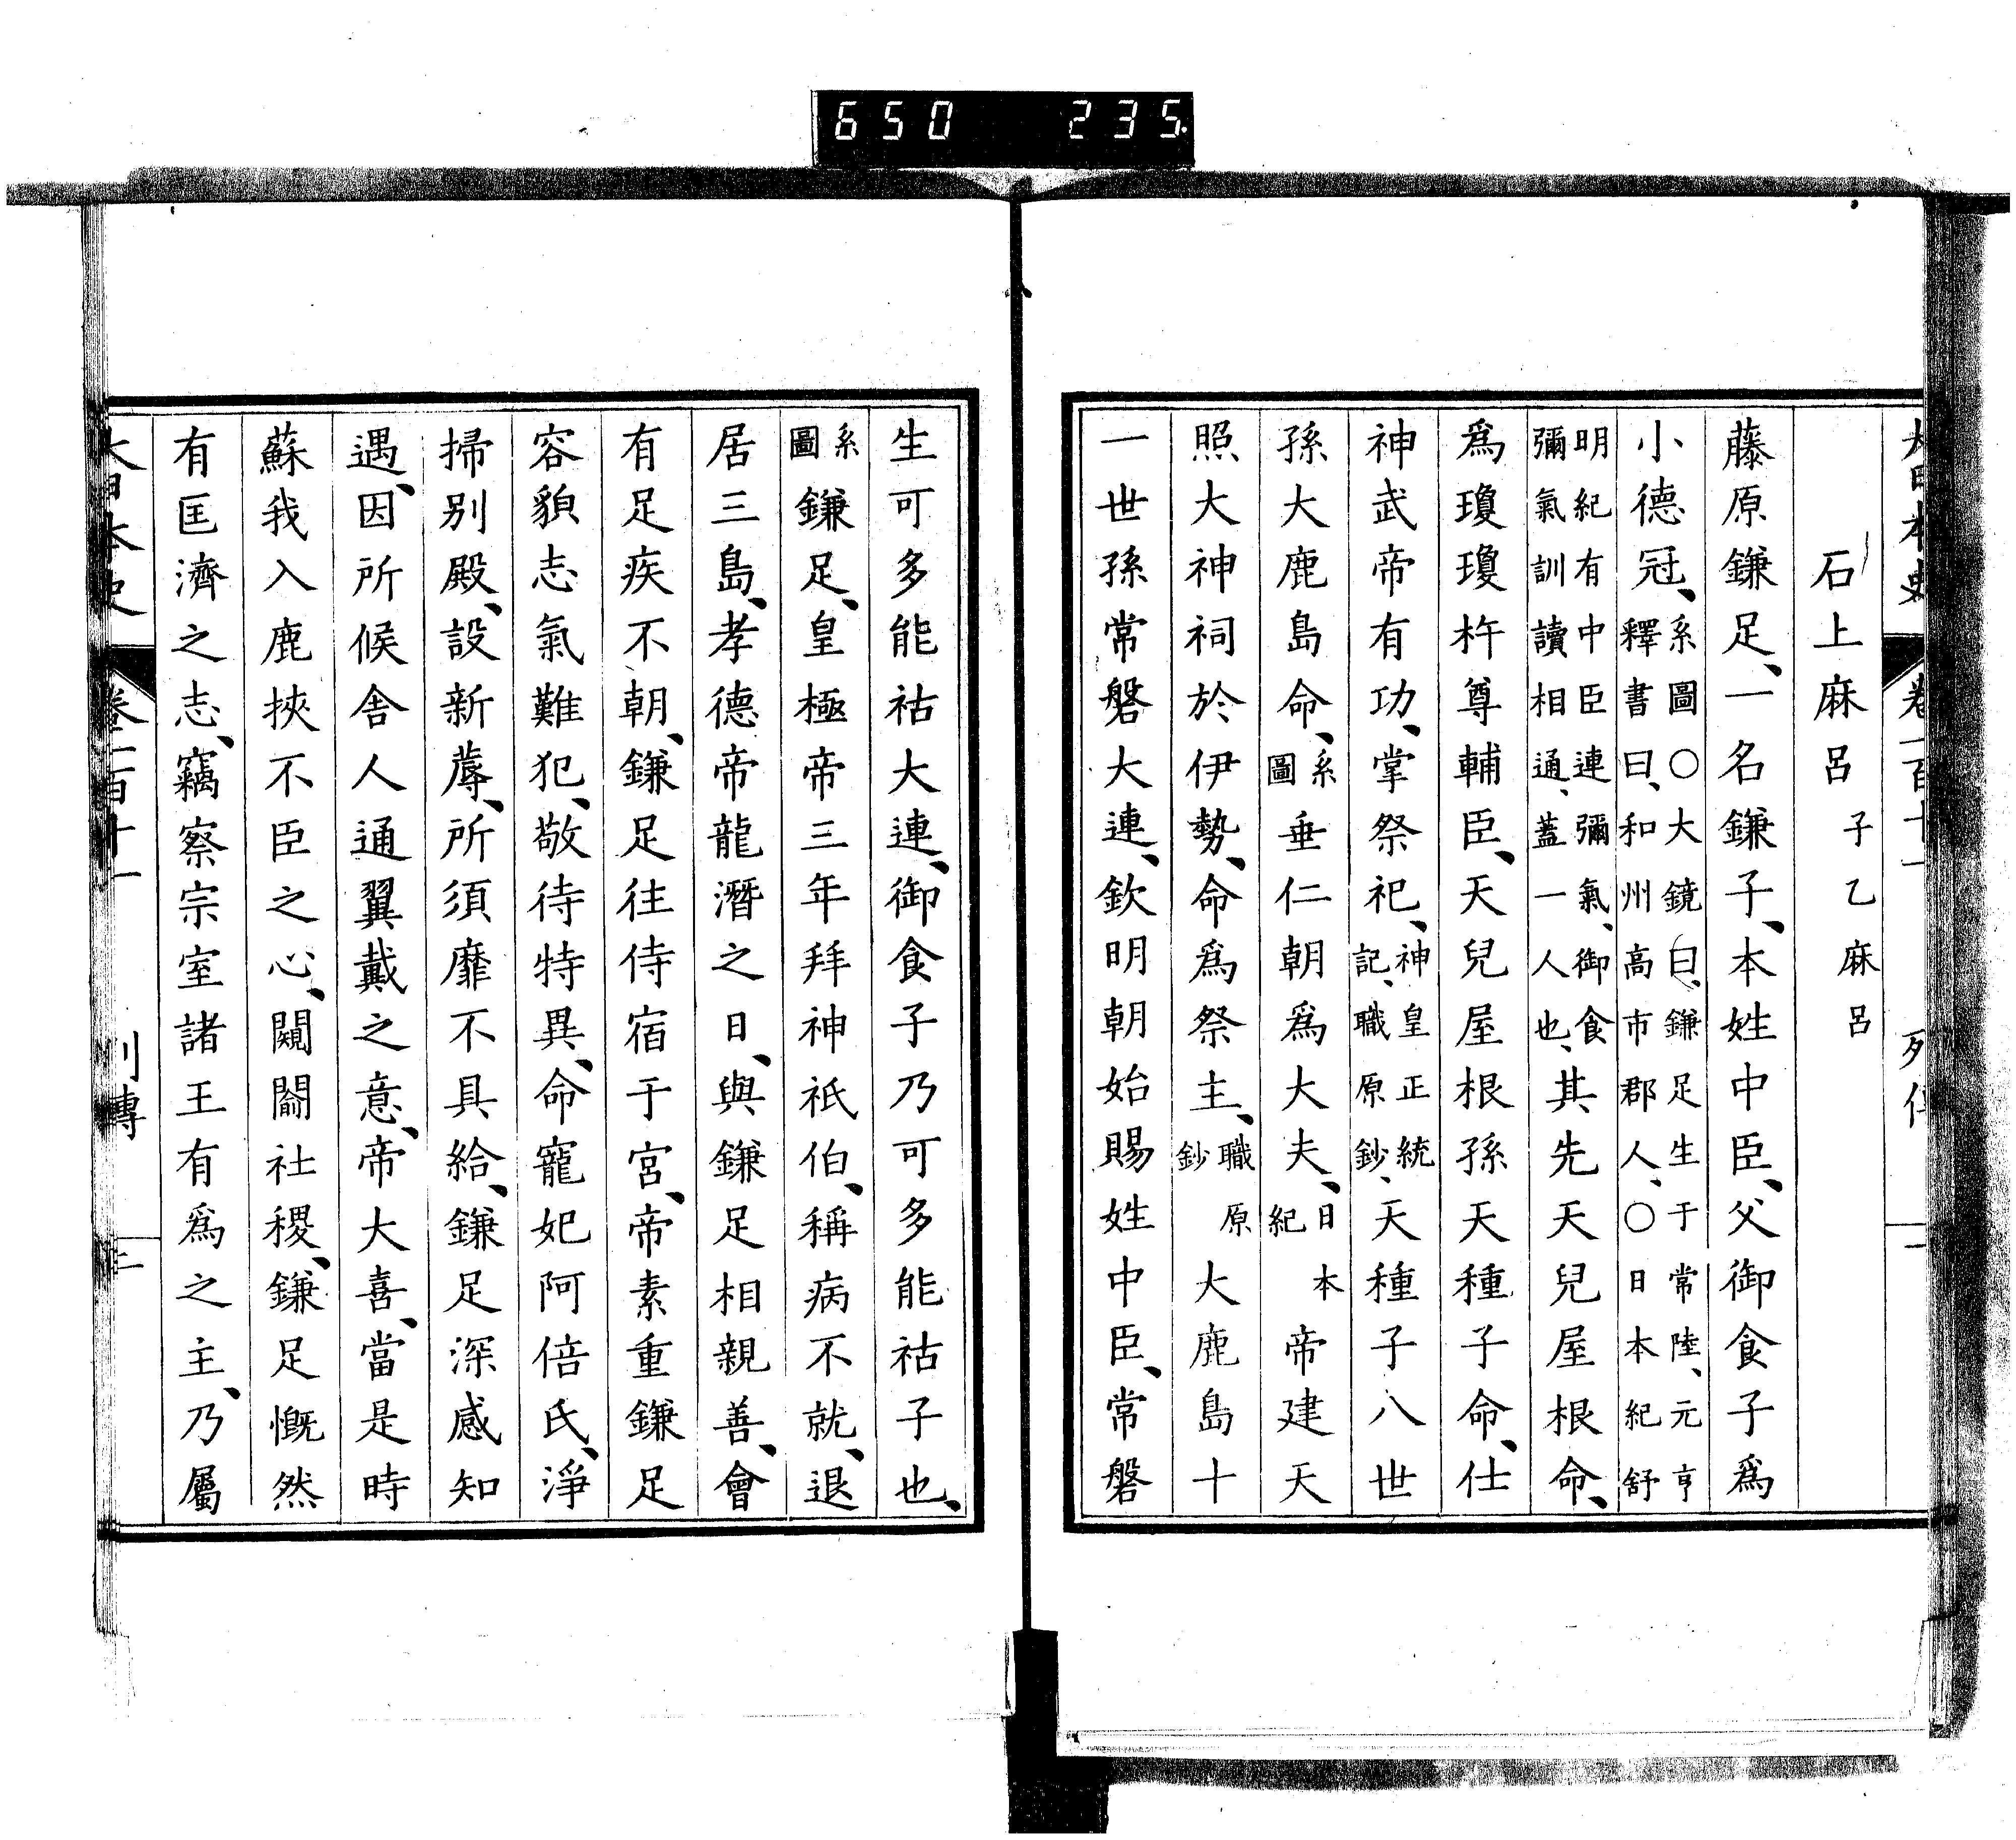 650 235.
大日本史 卷一百十一 列傳 一
石上麻呂 子乙麻呂
藤原鎌足、一名鎌子、本姓中臣、父御食子爲
小德冠、系圖〇大鏡曰、鎌足生于常陸、元亨釋書曰、和州高市郡人、〇日本紀舒
明紀有中臣連彌氣、御食彌氣訓讀相通、蓋一人也、其先天兒屋根命、
爲瓊瓊杵尊輔臣、天兒屋根孫天種子命、仕
神武帝有功、掌祭祀、神皇正統記、職原鈔、天種子八世
孫大鹿島命、系圖垂仁朝爲大夫、日本紀帝建天
照大神祠於伊勢、命爲祭主、職原鈔大鹿島十
一世孫常磐大連、欽明朝始賜姓中臣、常磐
生可多能祜大連、御食子乃可多能祜子也、
系圖鎌足、皇極帝三年拜神祇伯、稱病不就、退
居三島、孝德帝龍潛之日、與鎌足相親善、會
有足疾不朝、鎌足往侍宿于宮、帝素重鎌足
容貌志氣難犯、敬待特異、命寵妃阿倍氏、淨
掃別殿、設新蓐、所須靡不具給、鎌足深感知
遇、因所候舍人通翼戴之意、帝大喜、當是時
蘇我入鹿挾不臣之心、闚闟社稷、鎌足慨然
有匡濟之志、竊察宗室諸王有爲之主、乃屬
大日本史 卷一百十一 列傳 二